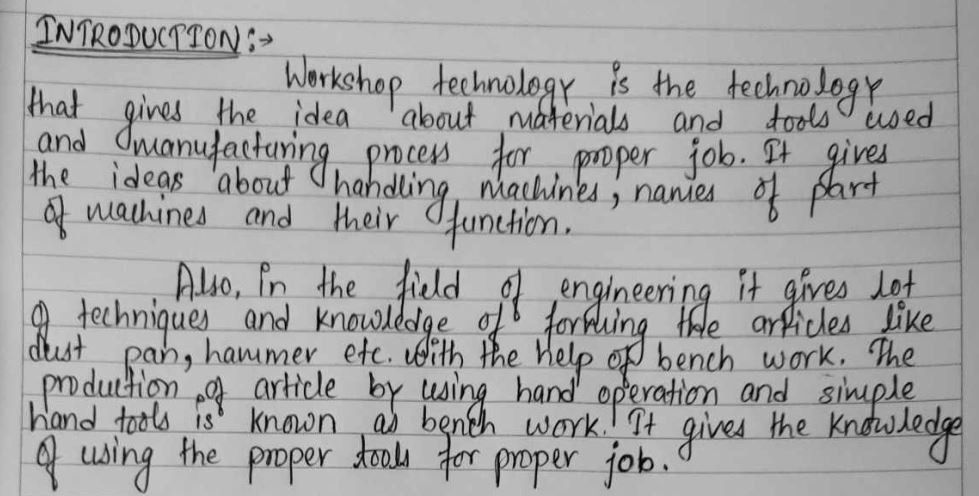 INTRODUCTION:→
Workshop technology is the technology
that gives the idea about materials and tools used
and manufacturing process for proper job. It gives
the ideas about handling machines, names of part
of machines and their function.
Also, in the field of engineering it gives lot
of techniques and knowledge of forming the articles like
dust pan, hammer etc. with the help of bench work. The
production of article by using hand operation and simple
hand tools is known as bench work. It gives the knowledge
of using the proper tools for proper job.